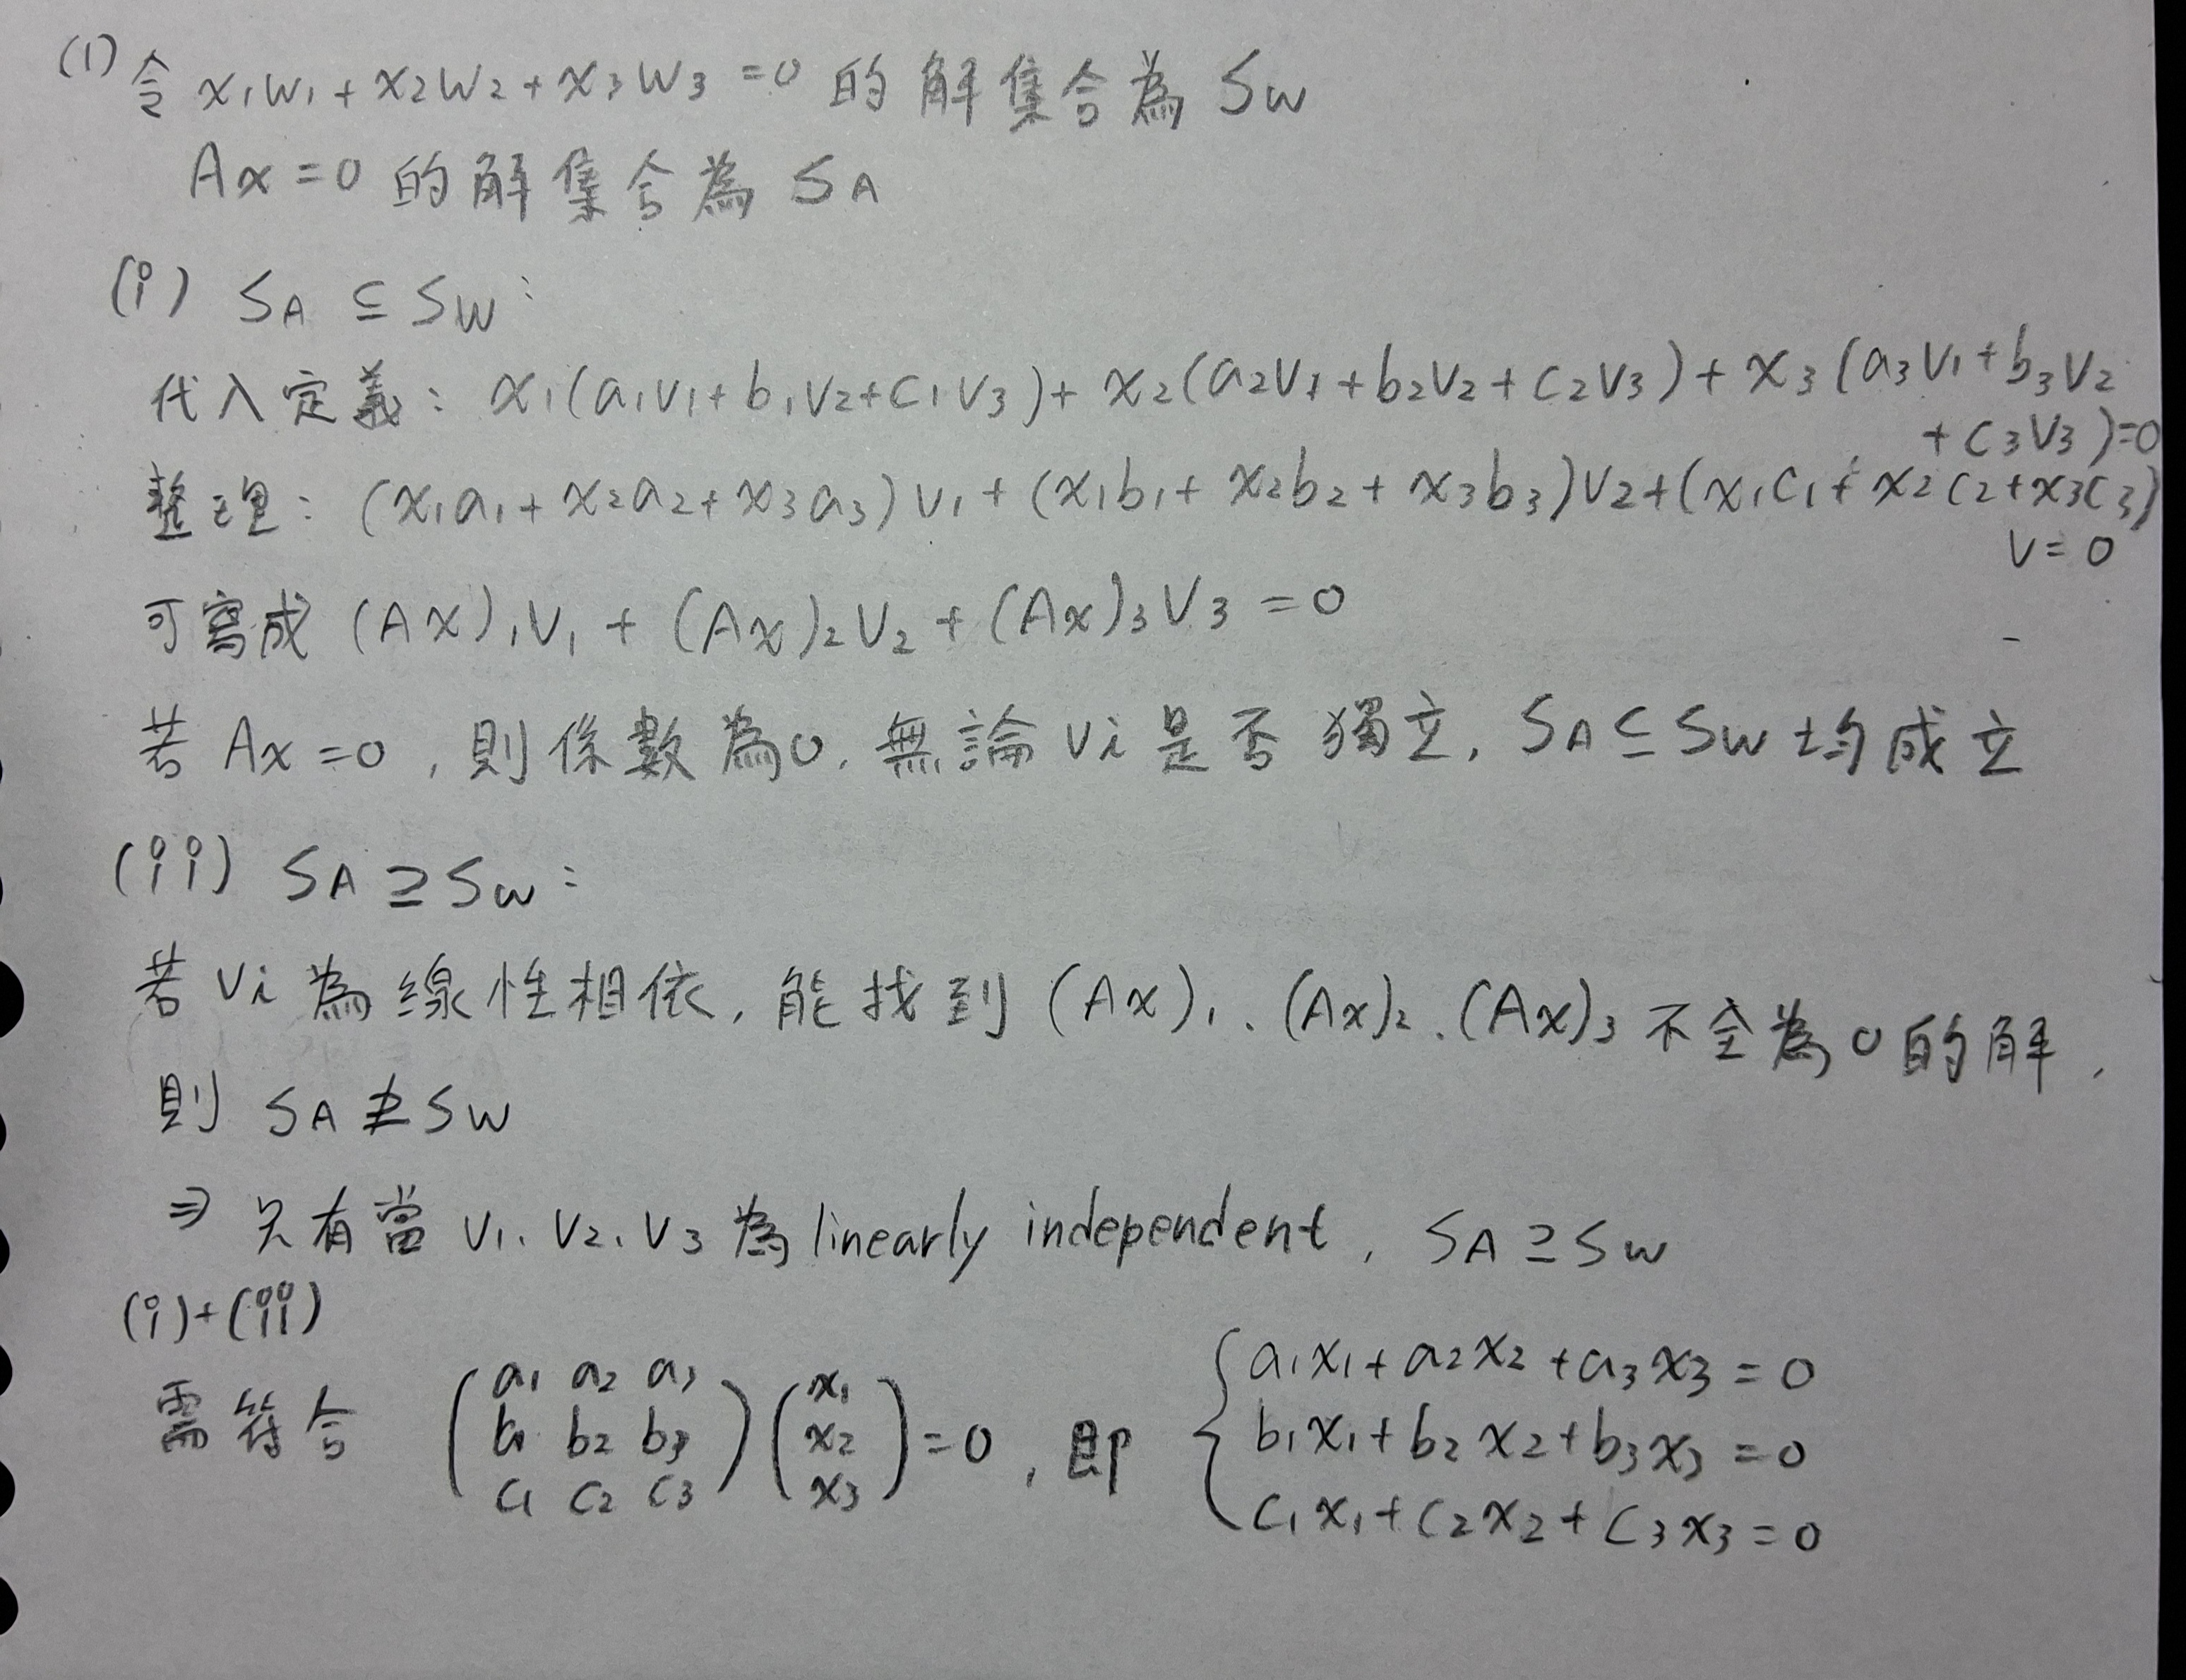 (1) 令 x₁w₁ + x₂w₂ + x₃w₃ = 0 的解集合為 Sw
Ax = 0 的解集合為 SA
(i) SA ⊆ SW :
代入定義 : x₁(a₁v₁ + b₁v₂ + c₁v₃) + x₂(a₂v₁ + b₂v₂ + c₂v₃) + x₃(a₃v₁ + b₃v₂
+ c₃v₃) = 0
整理 : (x₁a₁ + x₂a₂ + x₃a₃)v₁ + (x₁b₁ + x₂b₂ + x₃b₃)v₂ + (x₁c₁ + x₂c₂ + x₃c₃)
v = 0
可寫成 (Ax)₁v₁ + (Ax)₂v₂ + (Ax)₃v₃ = 0
若 Ax = 0 , 則係數為0, 無論 vi 是否獨立, SA ⊆ SW 均成立
(ii) SA ⊇ SW :
若 vi 為線性相依, 能找到 (Ax)₁、(Ax)₂、(Ax)₃ 不全為 0 的解,
則 SA ⊉ SW
⇒ 只有當 v₁、v₂、v₃ 為 linearly independent , SA ⊇ SW
(i)+(ii)
需符合 (a₁ a₂ a₃ / b₁ b₂ b₃ / c₁ c₂ c₃) (x₁ / x₂ / x₃) = 0 , 即 { a₁x₁ + a₂x₂ + a₃x₃ = 0
b₁x₁ + b₂x₂ + b₃x₃ = 0
c₁x₁ + c₂x₂ + c₃x₃ = 0